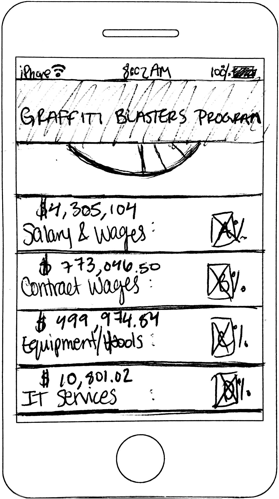 iPhone 8:02 AM 100%
GRAFFITI BLASTERS PROGRAM
$4,305,104
Salary & Wages: A%
$773,046.50
Contract Wages: B%
$499,974.84
Equipment/ : C%
$10,801.02
IT Services : D%